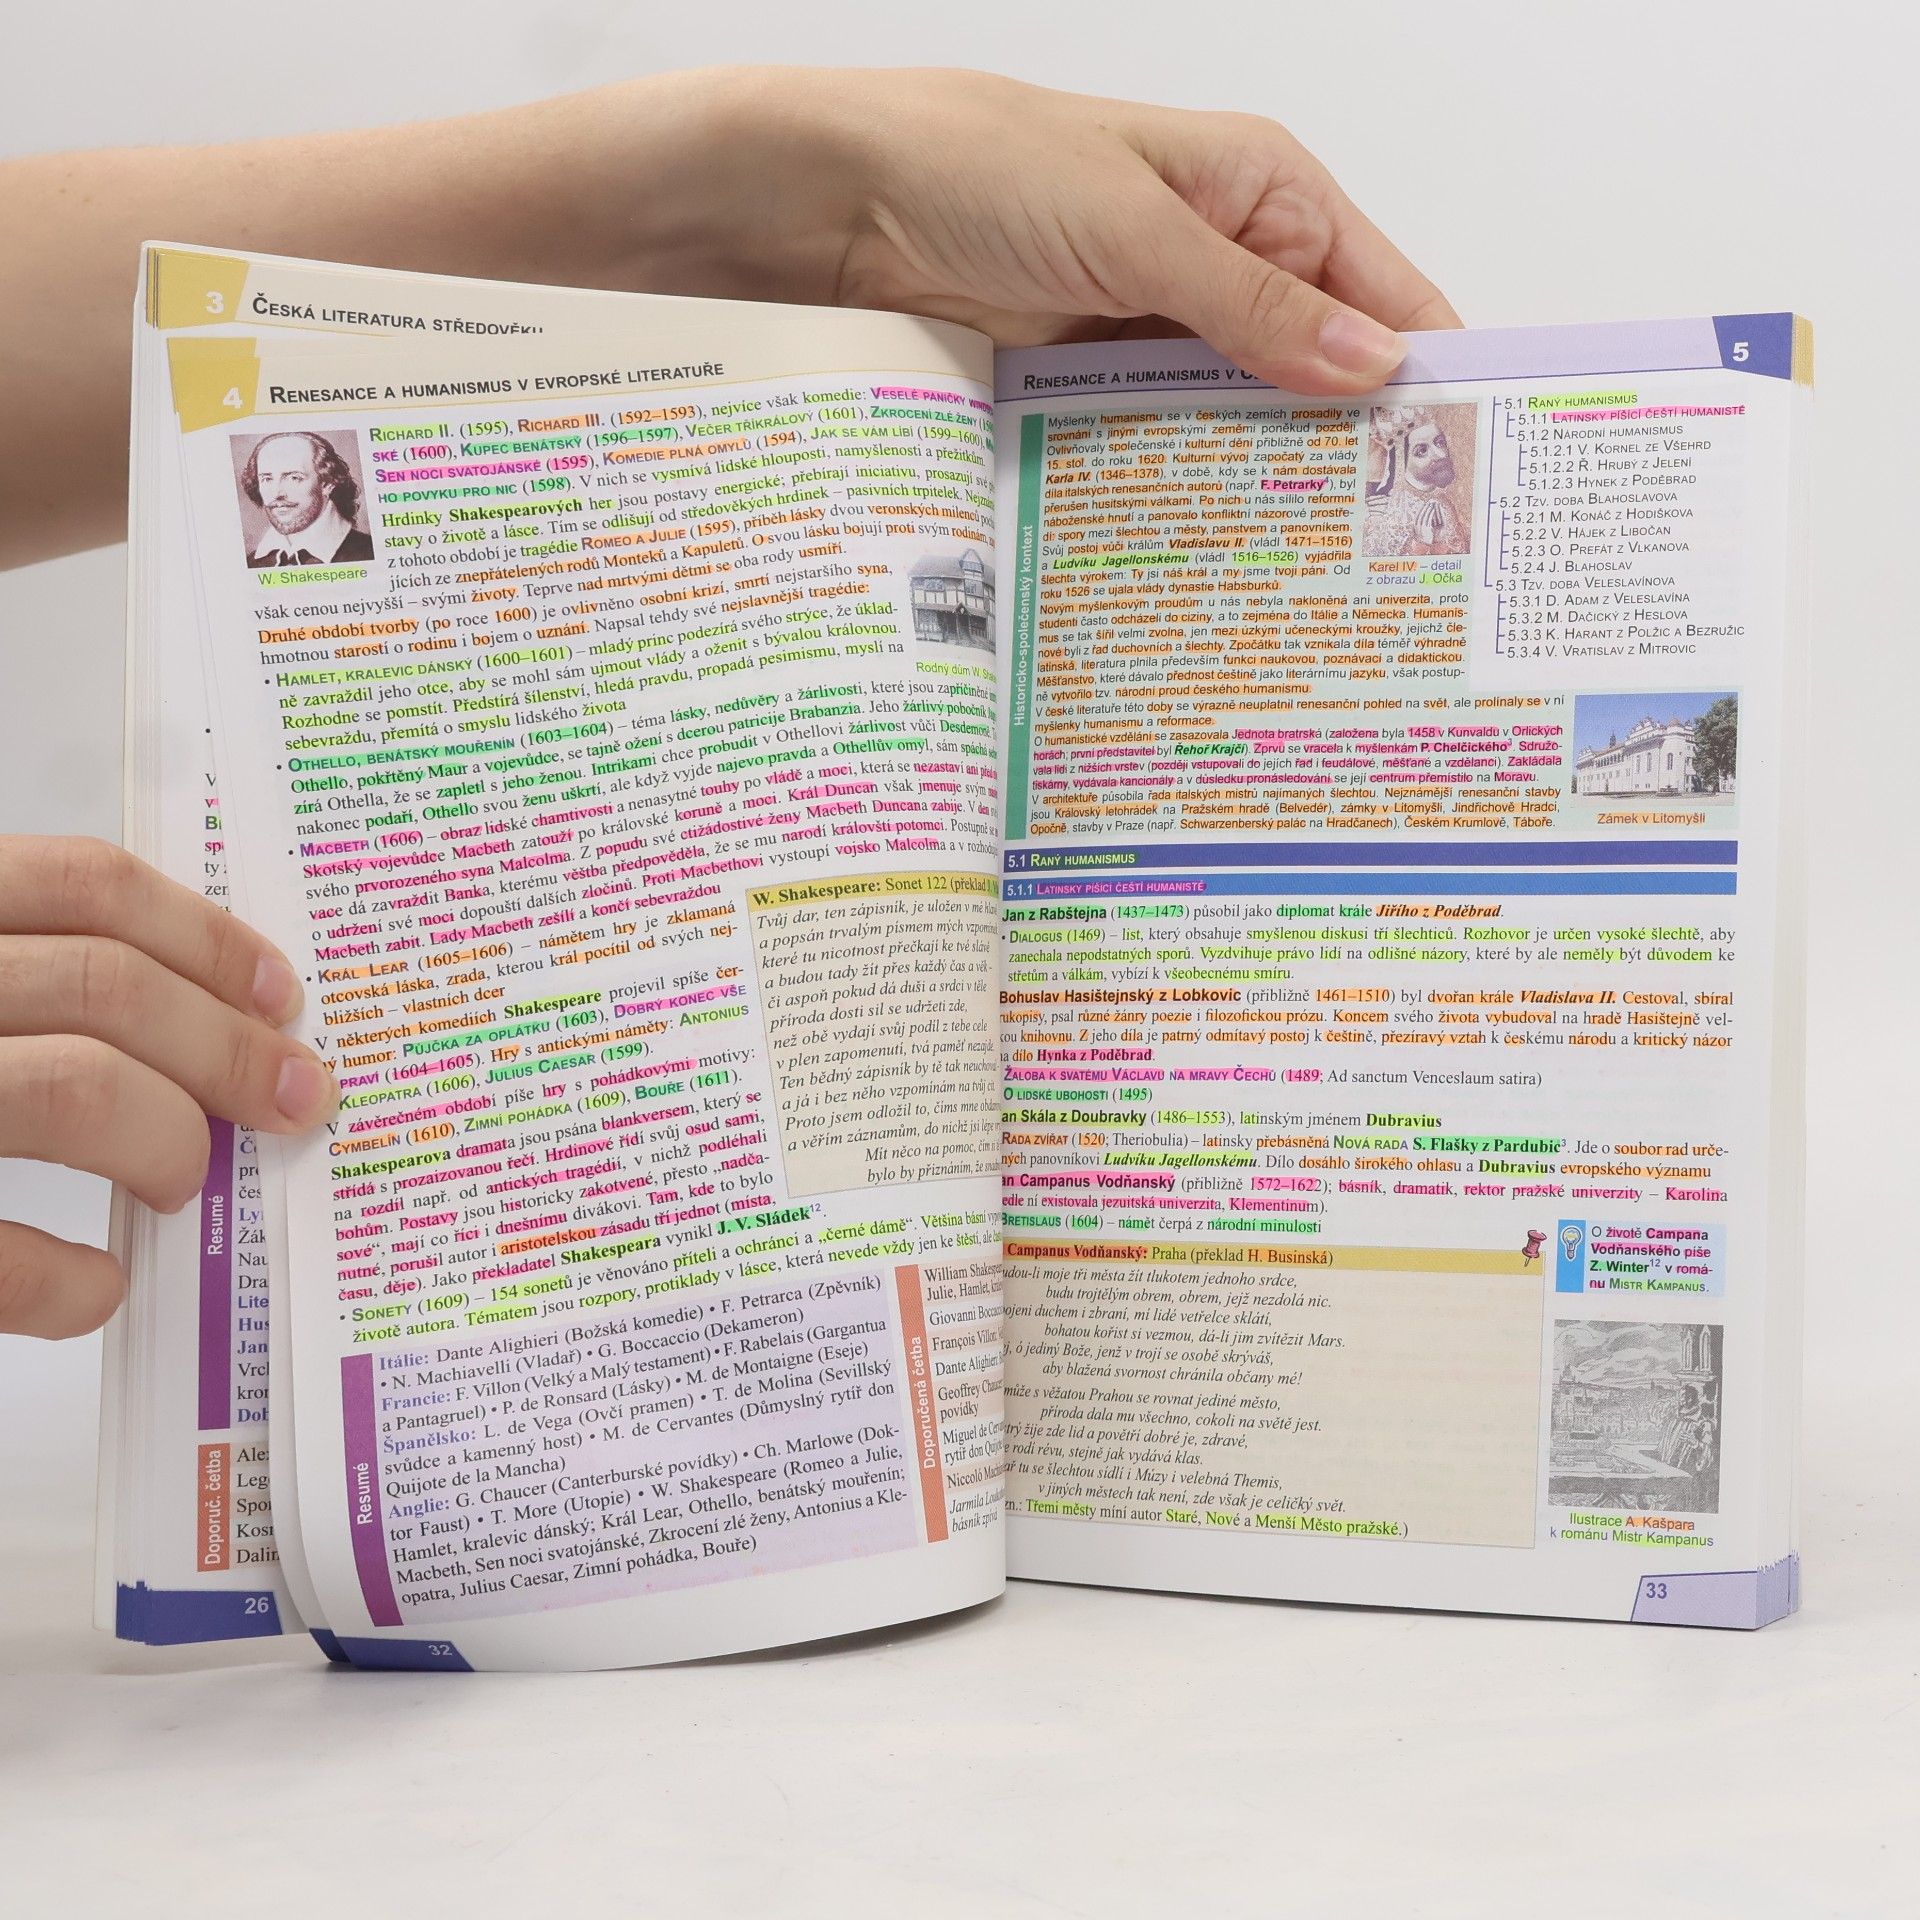 3 ČESKÁ LITERATURA STŘEDOVĚKU
4 RENESANCE A HUMANISMUS V EVROPSKÉ LITERATUŘE
RICHARD II. (1595), RICHARD III. (1592–1593), nejvíce však komedie: VESELÉ PANIČKY
SKÉ (1600), KUPEC BENÁTSKÝ (1596–1597), VEČER TŘÍKRÁLOVÝ (1601), ZKROCENÍ ZLÉ ŽENY
SEN NOCI SVATOJÁNSKÉ (1595), KOMEDIE PLNÁ OMYLŮ (1594), JAK SE VÁM LÍBÍ (1599–1600),
HO POVYKU PRO NIC (1598). V nich se vysmívá lidské hlouposti, namyšlenosti a přežitkům.
Hrdinky Shakespearových her jsou postavy energické; přebírají iniciativu, prosazují své
stavy o životě a lásce. Tím se odlišují od středověkých hrdinek – pasivních trpitelek.
z tohoto období je tragédie ROMEO A JULIE (1595), příběh lásky dvou veronských milenců
jících ze znepřátelených rodů Monteků a Kapuletů. O svou lásku bojují proti svým rodinám,
však cenou nejvyšší – svými životy. Teprve nad mrtvými dětmi se oba rody usmíří.
W. Shakespeare
Druhé období tvorby (po roce 1600) je ovlivněno osobní krizí, smrtí nejstaršího syna,
hmotnou starostí o rodinu i bojem o uznání. Napsal tehdy své nejslavnější tragédie:
• HAMLET, KRALEVIC DÁNSKÝ (1600–1601) – mladý princ podezírá svého strýce, že úklad-
ně zavraždil jeho otce, aby se mohl sám ujmout vlády a oženit s bývalou královnou.
Rozhodne se pomstít. Předstírá šílenství, hledá pravdu, propadá pesimismu, myslí na
sebevraždu, přemítá o smyslu lidského života
Rodný dům W.
• OTHELLO, BENÁTSKÝ MOUŘENÍN (1603–1604) – téma lásky, nedůvěry a žárlivosti, které jsou zapříčiněné
Othello, pokřtěný Maur a vojevůdce, se tajně ožení s dcerou patricije Brabanzia. Jeho žárlivý pobočník
zírá Othella, že se zapletl s jeho ženou. Intrikami chce probudit v Othellovi žárlivost vůči Desdemoně.
nakonec podaří, Othello svou ženu uškrtí, ale když vyjde najevo pravda a Othellův omyl, sám spáchá
• MACBETH (1606) – obraz lidské chamtivosti a nenasytné touhy po vládě a moci, která se nezastaví ani před
Skotský vojevůdce Macbeth zatouží po královské koruně a moci. Král Duncan však jmenuje svým
svého prvorozeného syna Malcolma. Z popudu své ctižádostivé ženy Macbeth Duncana zabije.
vace dá zavraždit Banka, kterému věštba předpověděla, že se mu narodí královští potomci. Postupně
o udržení své moci dopouští dalších zločinů. Proti Macbethovi vystoupí vojsko Malcolma a v
Macbeth zabit. Lady Macbeth zešílí a končí sebevraždou
• KRÁL LEAR (1605–1606) – námětem hry je zklamaná
otcovská láska, zrada, kterou král pocítil od svých nej-
bližších – vlastních dcer
V některých komediích Shakespeare projevil spíše čer-
ný humor: PŮJČKA ZA OPLÁTKU (1603), DOBRÝ KONEC VŠE
PRAVÍ (1604–1605). Hry s antickými náměty: ANTONIUS
KLEOPATRA (1606), JULIUS CAESAR (1599).
V závěrečném období píše hry s pohádkovými motivy:
CYMBELÍN (1610), ZIMNÍ POHÁDKA (1609), BOUŘE (1611).
Shakespearova dramata jsou psána blankversem, který se
střídá s prozaizovanou řečí. Hrdinové řídí svůj osud sami,
na rozdíl např. od antických tragédií, v nichž podléhali
bohům. Postavy jsou historicky zakotvené, přesto „nadča-
sové“, mají co říci i dnešnímu divákovi. Tam, kde to bylo
nutné, porušil autor i aristotelskou zásadu tří jednot (místa,
času, děje). Jako překladatel Shakespeara vynikl J. V. Sládek12.
• SONETY (1609) – 154 sonetů je věnováno příteli a ochránci a „černé dámě“. Většina básní
životě autora. Tématem jsou rozpory, protiklady v lásce, která nevede vždy jen ke štěstí, ale
W. Shakespeare: Sonet 122 (překlad
Tvůj dar, ten zápisník, je uložen v mé
a popsán trvalým písmem mých
které tu nicotnost přečkají ke tvé slávě
a budou tady žít přes každý čas a věk -
či aspoň pokud dá duši a srdci v těle
příroda dosti sil se udržeti zde,
než obě vydají svůj podíl z tebe cele
v plen zapomenutí, tvá paměť
Ten bědný zápisník by tě tak
a já i bez něho vzpomínám na tvůj cit.
Proto jsem odložil to, číms mne
a věřím záznamům, do nichž jsi lépe
Mít něco na pomoc, čím
bylo by přiznáním, že
Resumé
Itálie: Dante Alighieri (Božská komedie) • F. Petrarca (Zpěvník)
• N. Machiavelli (Vladař) • G. Boccaccio (Dekameron)
Francie: F. Villon (Velký a Malý testament) • F. Rabelais (Gargantua
a Pantagruel) • P. de Ronsard (Lásky) • M. de Montaigne (Eseje)
Španělsko: L. de Vega (Ovčí pramen) • T. de Molina (Sevillský
svůdce a kamenný host) • M. de Cervantes (Důmyslný rytíř don
Quijote de la Mancha)
Anglie: G. Chaucer (Canterburské povídky) • Ch. Marlowe (Dok-
tor Faust) • T. More (Utopie) • W. Shakespeare (Romeo a Julie,
Hamlet, kralevic dánský; Král Lear, Othello, benátský mouřenín;
Macbeth, Sen noci svatojánské, Zkrocení zlé ženy, Antonius a Kle-
opatra, Julius Caesar, Zimní pohádka, Bouře)
Doporučená četba
William
Julie, Hamlet,
Giovanni
François Villon:
Dante Alighieri:
Geoffrey Chaucer
povídky
Miguel de
rytíř don
Niccoló
Jarmila
básník zpívá
32
Resumé
Doporuč. četba
26
RENESANCE A HUMANISMUS V
5
Historicko-společenský kontext
Myšlenky humanismu se v českých zemích prosadily ve
srovnání s jinými evropskými zeměmi poněkud později.
Ovlivňovaly společenské i kulturní dění přibližně od 70. let
15. stol. do roku 1620. Kulturní vývoj započatý za vlády
Karla IV. (1346–1378), v době, kdy se k nám dostávala
díla italských renesančních autorů (např. F. Petrarky4), byl
přerušen husitskými válkami. Po nich u nás sílilo reformní
náboženské hnutí a panovalo konfliktní názorové prostře-
dí: spory mezi šlechtou a městy, panstvem a panovníkem.
Svůj postoj vůči králům Vladislavu II. (vládl 1471–1516)
a Ludvíku Jagellonskému (vládl 1516–1526) vyjádřila
šlechta výrokem: Ty jsi náš král a my jsme tvoji páni. Od
roku 1526 se ujala vlády dynastie Habsburků.
Karel IV. – detail
z obrazu J. Očka
Novým myšlenkovým proudům u nás nebyla nakloněná ani univerzita, proto
studenti často odcházeli do ciziny, a to zejména do Itálie a Německa. Humanis-
mus se tak šířil velmi zvolna, jen mezi úzkými učeneckými kroužky, jejichž čle-
nové byli z řad duchovních a šlechty. Zpočátku tak vznikala díla téměř výhradně
latinská, literatura plnila především funkci naukovou, poznávací a didaktickou.
Měšťanstvo, které dávalo přednost češtině jako literárnímu jazyku, však postup-
ně vytvořilo tzv. národní proud českého humanismu.
V české literatuře této doby se výrazně neuplatnil renesanční pohled na svět, ale prolínaly se v ní
myšlenky humanismu a reformace.
O humanistické vzdělání se zasazovala Jednota bratrská (založena byla 1458 v Kunvaldu v Orlických
horách; první představitel byl Řehoř Krajčí). Zprvu se vracela k myšlenkám P. Chelčického3. Sdružo-
vala lidi z nižších vrstev (později vstupovali do jejích řad i feudálové, měšťané a vzdělanci). Zakládala
tiskárny, vydávala kancionály a v důsledku pronásledování se její centrum přemístilo na Moravu.
V architektuře působila řada italských mistrů najímaných šlechtou. Nejznámější renesanční stavby
jsou Královský letohrádek na Pražském hradě (Belvedér), zámky v Litomyšli, Jindřichově Hradci,
Opočně, stavby v Praze (např. Schwarzenberský palác na Hradčanech), Českém Krumlově, Táboře.
Zámek v Litomyšli
5.1 RANÝ HUMANISMUS
5.1.1 LATINSKY PÍŠÍCÍ ČEŠTÍ HUMANISTÉ
5.1.2 NÁRODNÍ HUMANISMUS
5.1.2.1 V. KORNEL ZE VŠEHRD
5.1.2.2 Ř. HRUBÝ Z JELENÍ
5.1.2.3 HYNEK Z PODĚBRAD
5.2 TZV. DOBA BLAHOSLAVOVA
5.2.1 M. KONÁČ Z HODIŠKOVA
5.2.2 V. HÁJEK Z LIBOČAN
5.2.3 O. PREFÁT Z VLKANOVA
5.2.4 J. BLAHOSLAV
5.3 TZV. DOBA VELESLAVÍNOVA
5.3.1 D. ADAM Z VELESLAVÍNA
5.3.2 M. DAČICKÝ Z HESLOVA
5.3.3 K. HARANT Z POLŽIC A BEZRUŽIC
5.3.4 V. VRATISLAV Z MITROVIC
5.1 RANÝ HUMANISMUS
5.1.1 LATINSKY PÍŠÍCÍ ČEŠTÍ HUMANISTÉ
Jan z Rabštejna (1437–1473) působil jako diplomat krále Jiřího z Poděbrad.
• DIALOGUS (1469) – list, který obsahuje smyšlenou diskusi tří šlechticů. Rozhovor je určen vysoké šlechtě, aby
zanechala nepodstatných sporů. Vyzdvihuje právo lidí na odlišné názory, které by ale neměly být důvodem ke
střetům a válkám, vybízí k všeobecnému smíru.
Bohuslav Hasištejnský z Lobkovic (přibližně 1461–1510) byl dvořan krále Vladislava II. Cestoval, sbíral
rukopisy, psal různé žánry poezie i filozofickou prózu. Koncem svého života vybudoval na hradě Hasištejně vel-
kou knihovnu. Z jeho díla je patrný odmítavý postoj k češtině, přezíravý vztah k českému národu a kritický názor
na dílo Hynka z Poděbrad.
ŽALOBA K SVATÉMU VÁCLAVU NA MRAVY ČECHŮ (1489; Ad sanctum Venceslaum satira)
O LIDSKÉ UBOHOSTI (1495)
an Skála z Doubravky (1486–1553), latinským jménem Dubravius
RADA ZVÍŘAT (1520; Theriobulia) – latinsky přebásněná NOVÁ RADA S. Flašky z Pardubic3. Jde o soubor rad urče-
ných panovníkovi Ludvíku Jagellonskému. Dílo dosáhlo širokého ohlasu a Dubravius evropského významu
an Campanus Vodňanský (přibližně 1572–1622); básník, dramatik, rektor pražské univerzity – Karolina
edle ní existovala jezuitská univerzita, Klementinum).
BRETISLAUS (1604) – námět čerpá z národní minulosti
Campanus Vodňanský: Praha (překlad H. Businská)
udou-li moje tři města žít tlukotem jednoho srdce,
budu trojtělým obrem, obrem, jejž nezdolá nic.
ojeni duchem i zbraní, mi lidé vetřelce sklátí,
bohatou kořist si vezmou, dá-li jim zvítězit Mars.
ó jediný Bože, jenž v trojí se osobě skrýváš,
aby blažená svornost chránila občany mé!
může s věžatou Prahou se rovnat jediné město,
příroda dala mu všechno, cokoli na světě jest.
trý žije zde lid a povětří dobré je, zdravé,
e rodí révu, stejně jak vydává klas.
ař tu se šlechtou sídlí i Múzy i velebná Themis,
v jiných městech tak není, zde však je celičký svět.
zn.: Třemi městy míní autor Staré, Nové a Menší Město pražské.)
O životě Campana
Vodňanského píše
Z. Winter12 v romá-
nu MISTR KAMPANUS.
Ilustrace A. Kašpara
k románu Mistr Kampanus
33